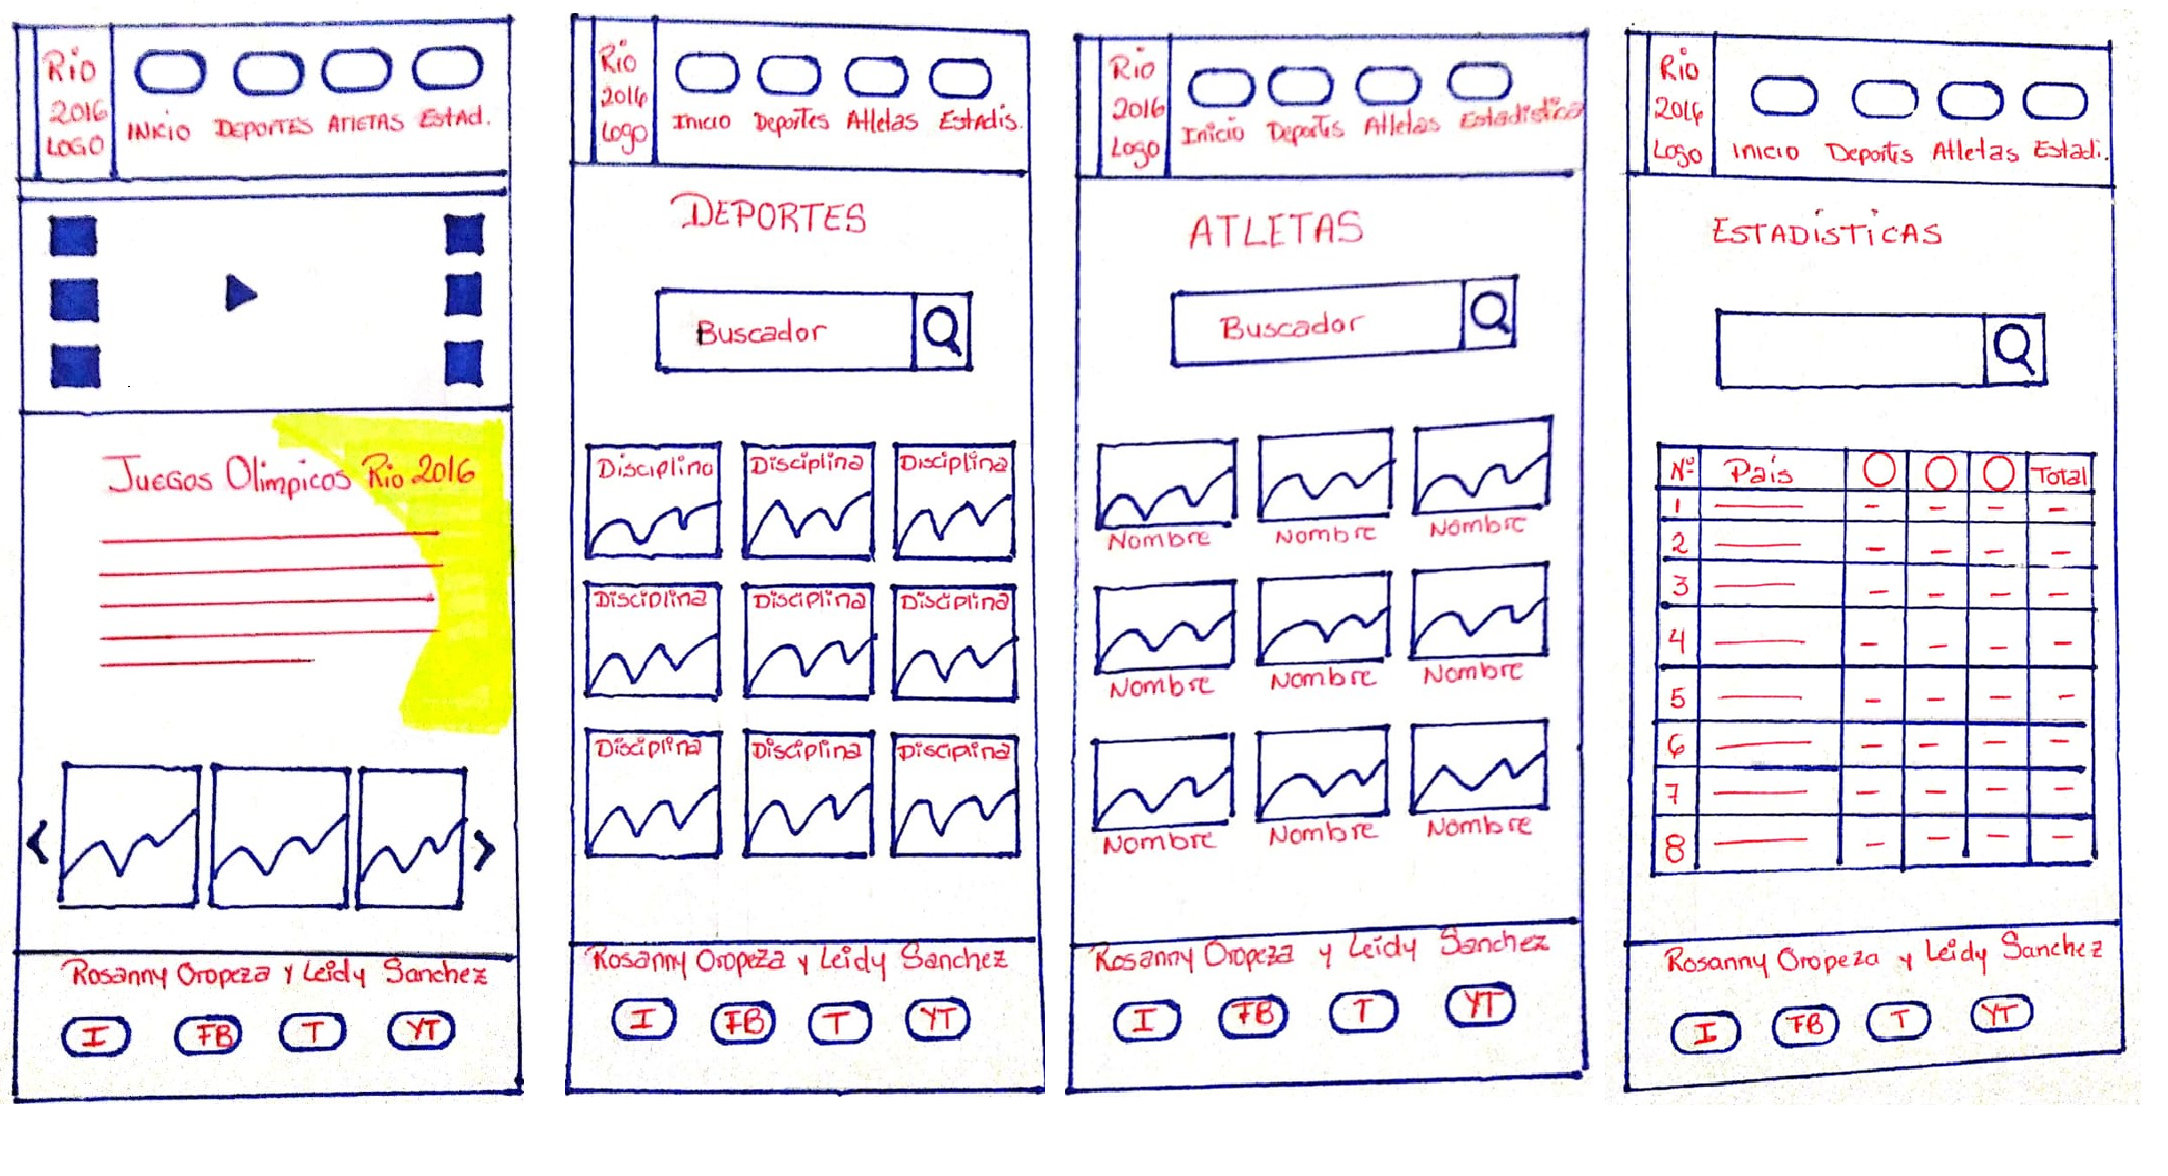 Rio
2016
LOGO
INICIO DEPORTES ATLETAS EstAd.
Juegos Olimpicos Rio 2016
Rosanny Oropeza y Leidy Sanchez
I FB T YT
Rio
2016
Logo
Inicio Deportes Atletas EstAdis.
DEPORTES
Buscador
Disciplina Disciplina Disciplina
Disciplina Disciplina Disciplina
Disciplina Disciplina Disciplina
Rosanny Oropeza y Leidy Sanchez
I FB T YT
Rio
2016
Logo
Inicio Deportes Atletas Estadistica
ATLETAS
Buscador
Nombre Nombre Nombre
Nombre Nombre Nombre
Nombre Nombre Nombre
Rosanny Oropeza y Leidy Sanchez
I FB T YT
Rio
2016
Logo
Inicio Deportes Atletas Estadi.
ESTADÍSTICAS
Nº País Total
1
2
3
4
5
6
7
8
Rosanny Oropeza y Leidy Sanchez
I FB T YT